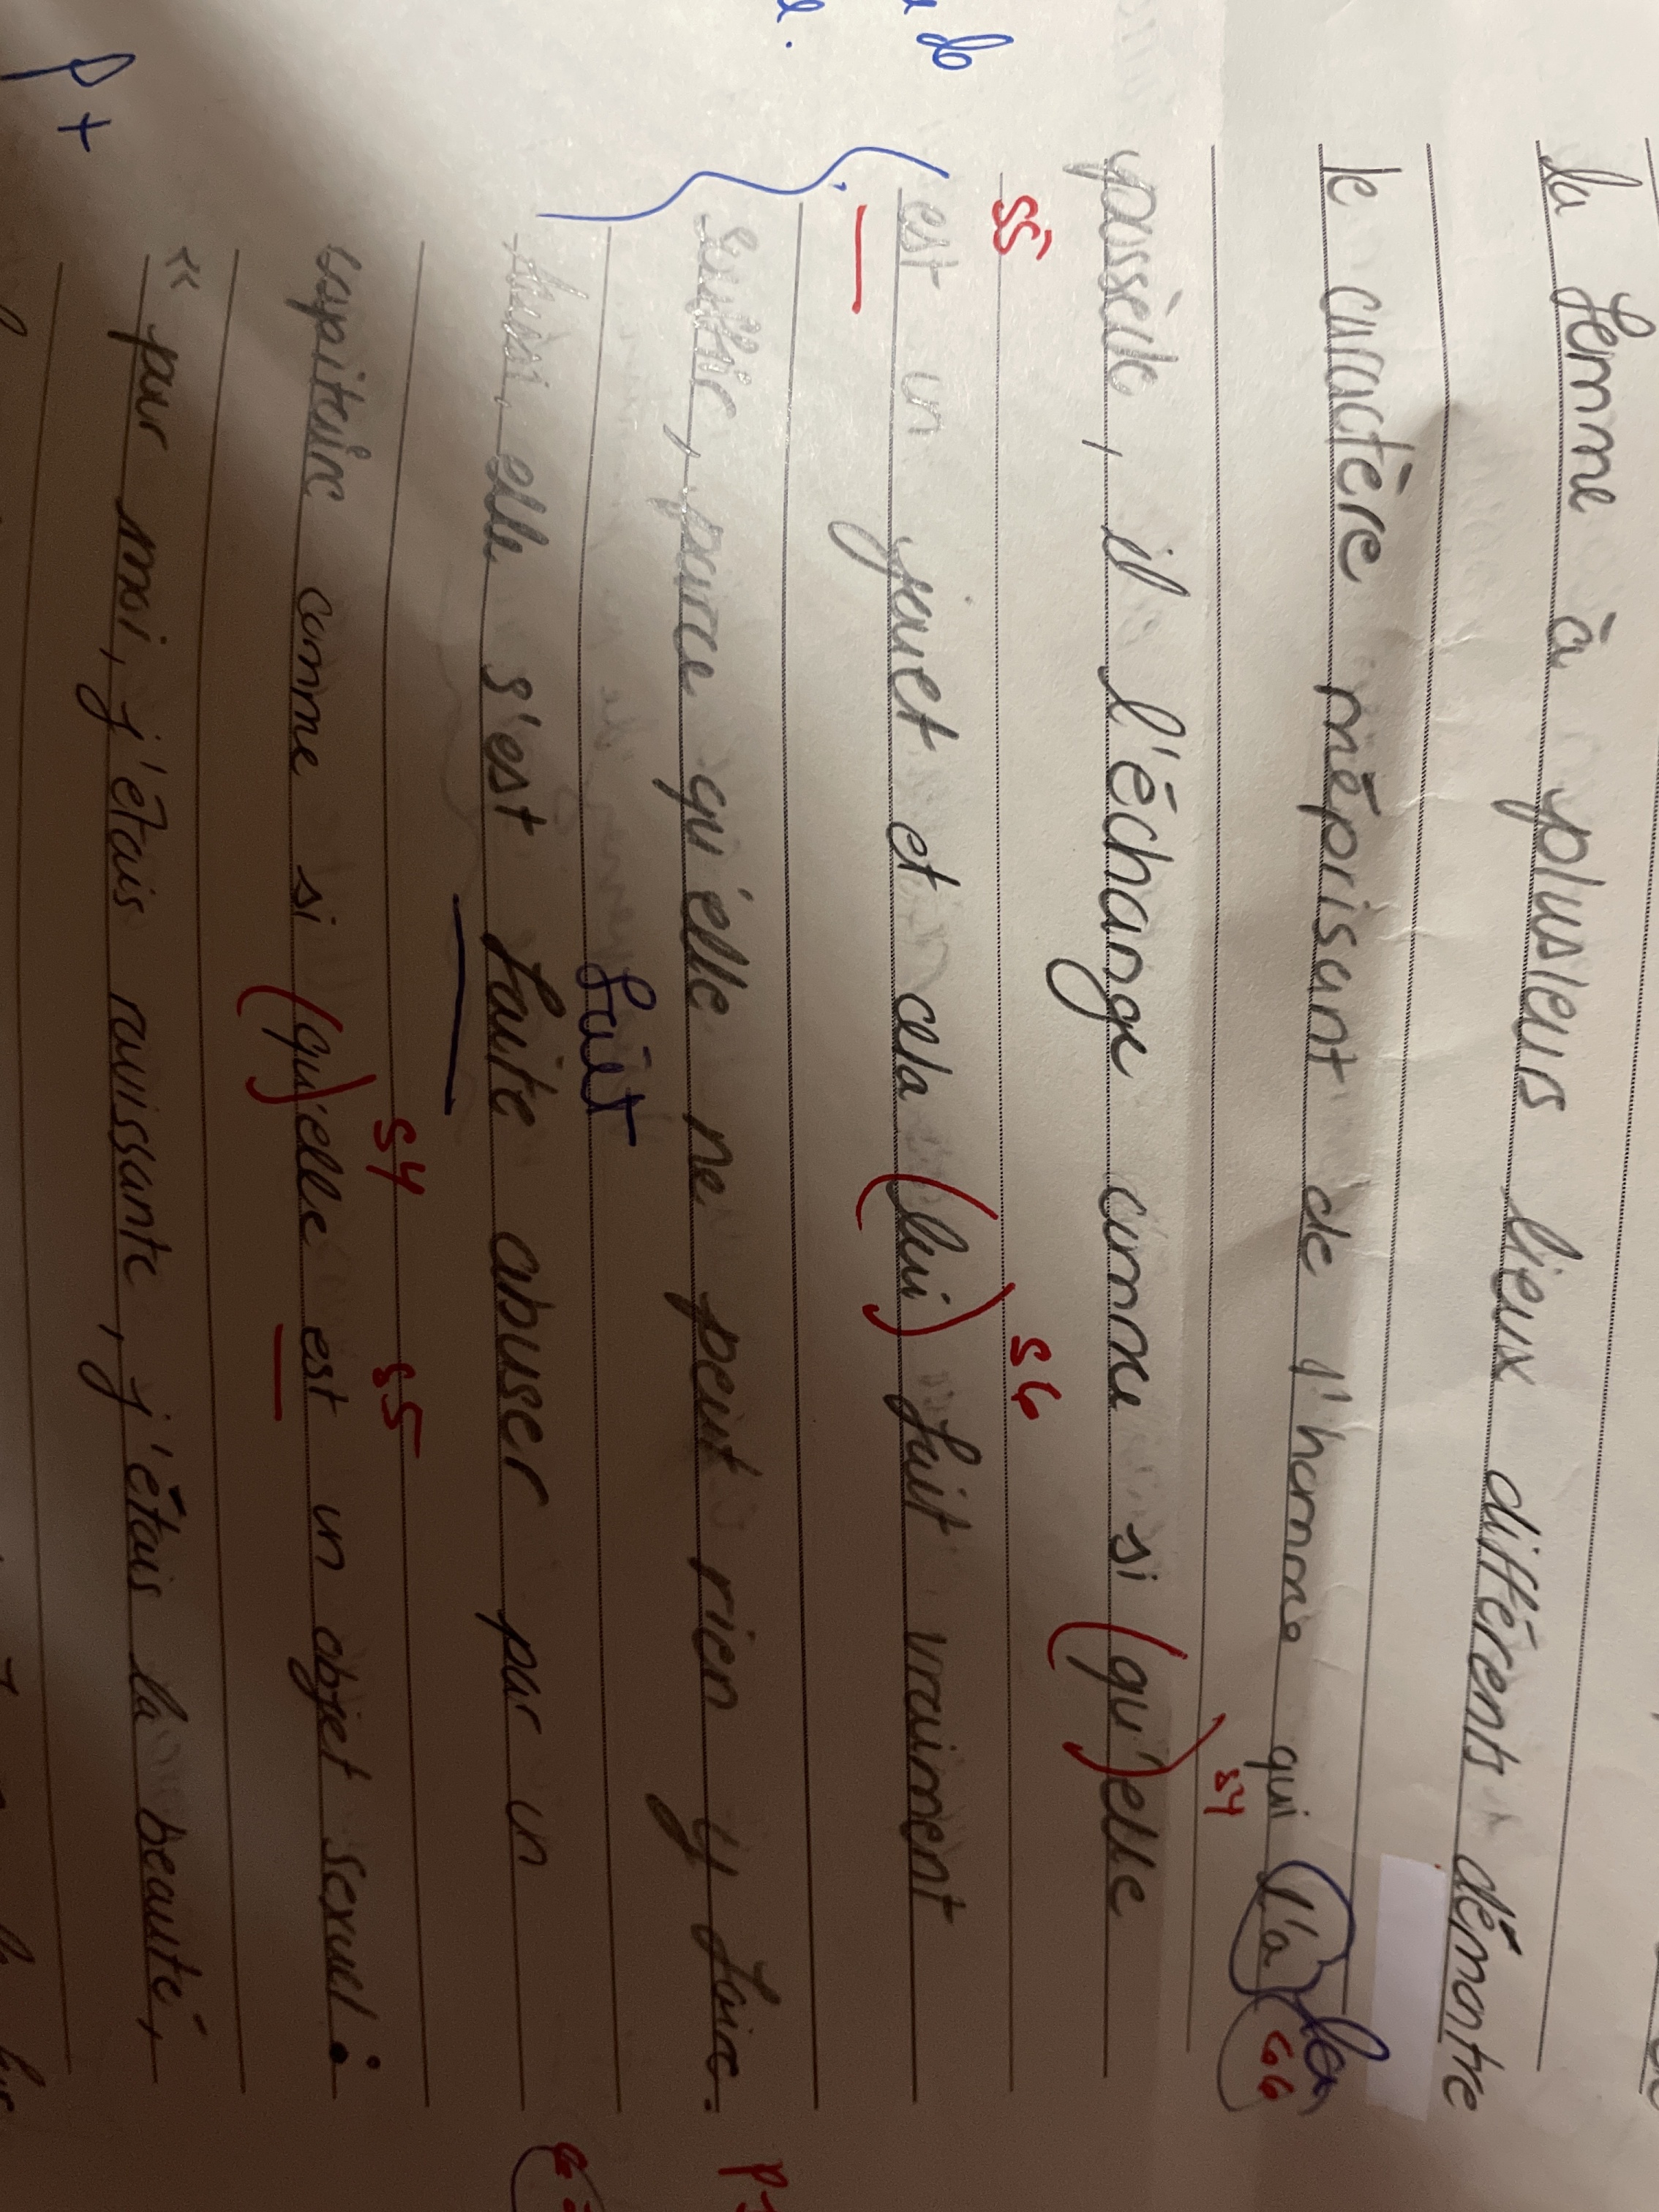 la femme à plusieurs lieux différents démontre
le caractère méprisant de l'homme qui l'a la
C6b
possède, il l'échange comme si (qu')elle
S4
S5
est un jouet et cela (lui) fait vraiment
S6
souffrir, parce qu'elle ne peut rien y faire.
Aussi, elle s'est faite abuser par un
fait
capitaine comme si (qu')elle est un objet sexuel :
S4
S5
« pour moi, j'étais ravissante, j'étais la beauté,
P+